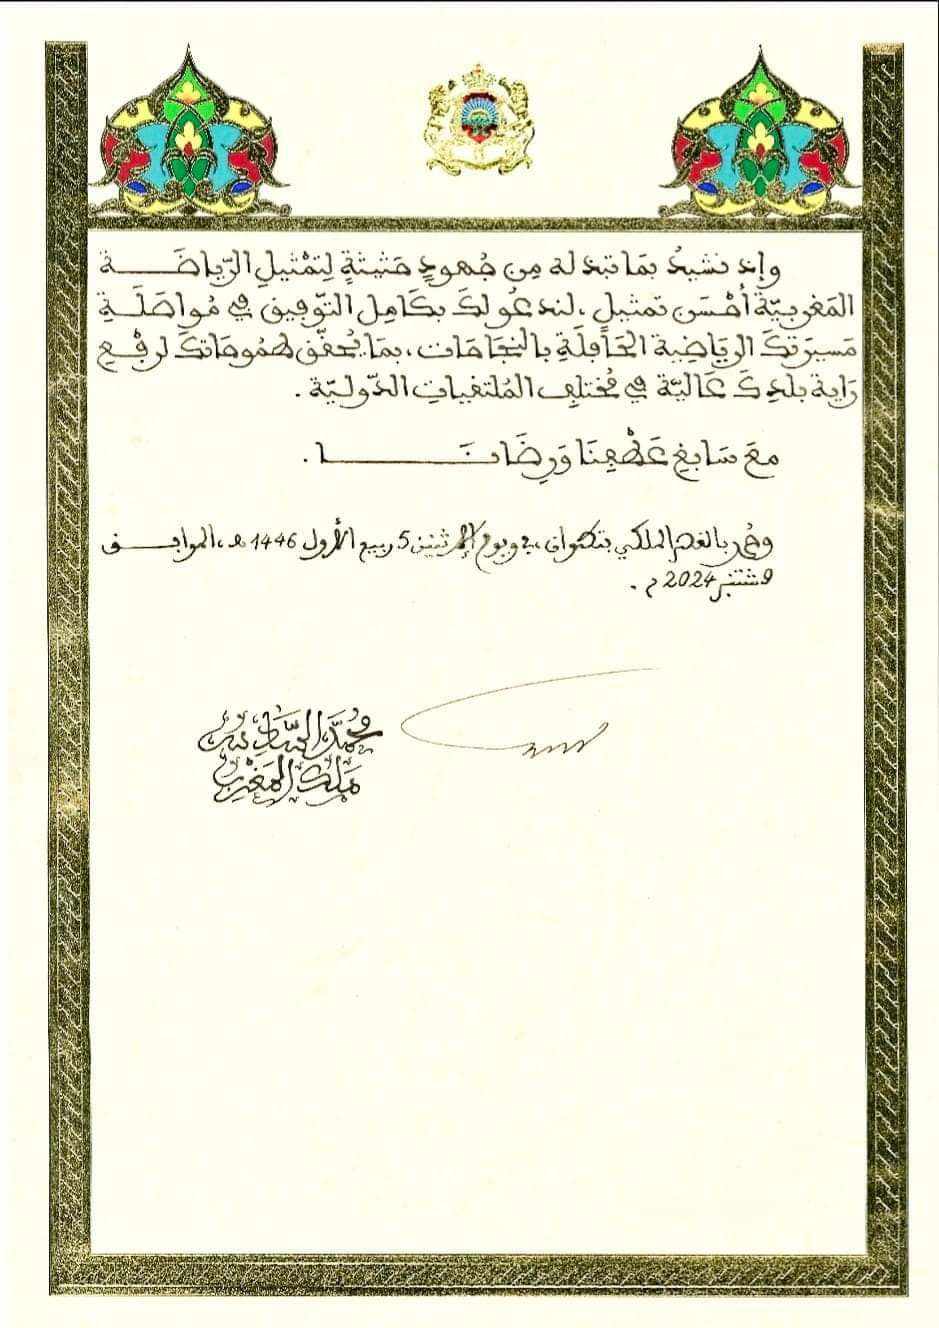 وإذ نشيدُ بمَا تبذله مِن جُهودٍ حَثيثةٍ لِتمْثيلِ الرّياضَة
المَغربيّة أحْسَن تمثيلٍ، لندعُو لكَ بكَامِل التّوفيق في مُواصَلَةِ
مَسيرَتكَ الرياضِية الحَافِلَةِ بالنجَاحَات، بمَا يُحقّق طمُوحَاتكَ لرفْع
رَاية بلدِكَ عَاليّة في مُختلِف المُلتقيَاتِ الدّوليّة.
معَ سَابغِ عَطْفِنَا وَرِضَانَا.
وحُرر بالقصر الملكي بتطوان، في يوم الإثنين 5 ربيع الأول 1446 هـ، الموافق
9 شتنبر 2024 م.
محمّد السّادس
مَلك المَغْرب